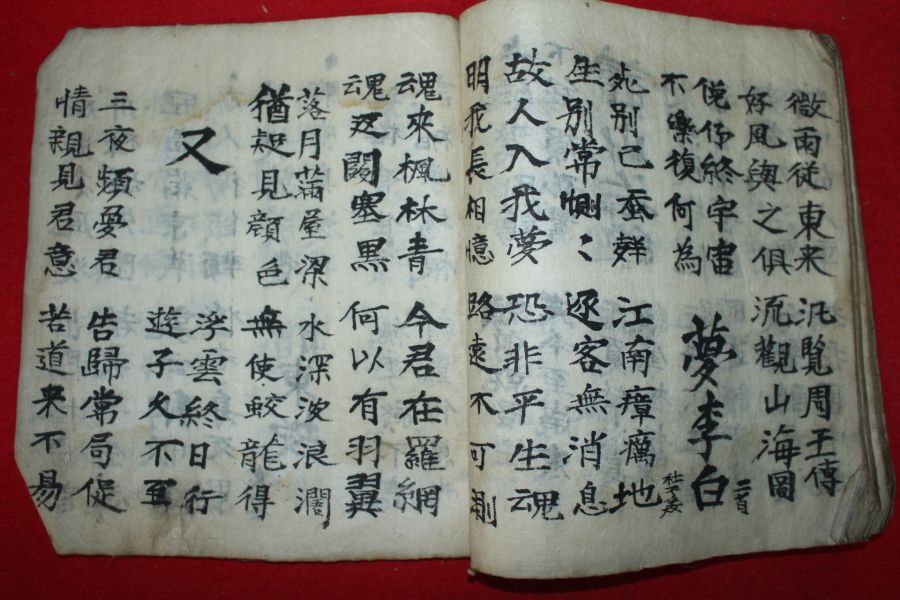 微雨從東来 汎覽周王傳
好風與之俱 流觀山海圖
俛仰終宇宙
不樂復何為
夢李白 二首
杜子美
死別已吞聲 江南瘴癘地
生別常惻〻 逐客無消息
故人入我夢 恐非平生魂
明我長相憶 路遠不可測
魂來楓林青 今君在羅網
魂返關塞黑 何以有羽翼
落月滿屋梁 水深波浪濶
猶疑見顔色 無使蛟龍得
又
浮雲終日行
遊子久不至
三夜頻愛君 告歸常局促
情親見君意 苦道来不易